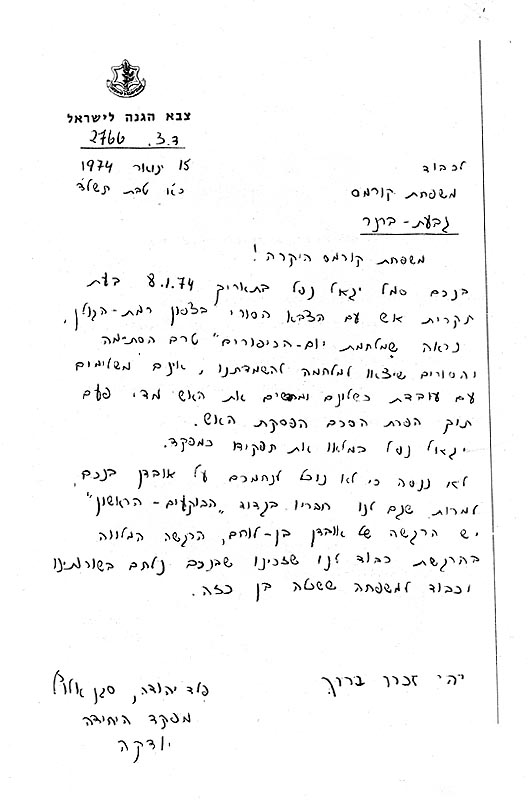 צבא הגנה לישראל
ד.צ. 2766
15 ינואר 1974
כ"א טבת תשל"ד
לכבוד
משפחת קורמס
גבעת - ברנר
משפחת קורמס היקרה!
בנכם סמל יגאל נפל בתאריך 8.1.74 בעת
תקרית אש עם הצבא הסורי בצפון רמת-הגולן.
נראה שמלחמת יום-הכיפורים" טרם הסתימה
והסורים שיצאו למלחמה להשמדתנו, אינם משלימים
עם עובדת כשלונם ומחדשים את האש מדי פעם
תוך הפרת הסכם הפסקת האש.
יגאל נפל במלאו את תפקידו כמפקד.
לא ננסה כי לא נוכל לנחמכם על אובדן בנכם,
למרות שגם לנו חבריו בגדוד "הבוקעים - הראשון"
יש הרגשה של אובדן בן-לוחם, הרגשה המלווה
בהרגשת כבוד לנו שזכינו שבנכם נלחם בשורותינו
וכבוד למשפחה בן כזה.
יהי זכרו ברוך
פלד יהודה, סגן אלוף
מפקד היחידה
יודקה